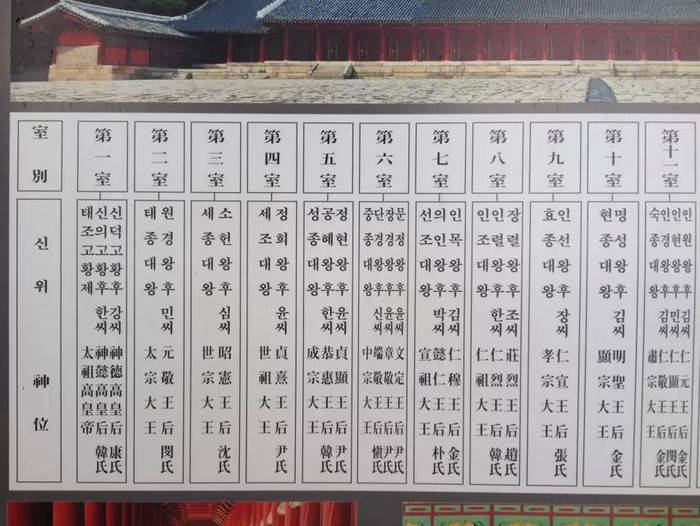 室別
신위
神位
第一室
태조고황제
신의고황후 한씨
신덕고황후 강씨
太祖高皇帝
神懿高皇后 韓氏
神德高皇后 康氏
第二室
태종대왕
원경왕후 민씨
太宗大王
元敬王后 閔氏
第三室
세종대왕
소헌왕후 심씨
世宗大王
昭憲王后 沈氏
第四室
세조대왕
정희왕후 윤씨
世祖大王
貞熹王后 尹氏
第五室
성종대왕
공혜왕후 한씨
정현왕후 윤씨
成宗大王
恭惠王后 韓氏
貞顯王后 尹氏
第六室
중종대왕
단경왕후 신씨
장경왕후 윤씨
문정왕후 윤씨
中宗大王
端敬王后 愼氏
章敬王后 尹氏
文定王后 尹氏
第七室
선조대왕
의인왕후 박씨
인목왕후 김씨
宣祖大王
懿仁王后 朴氏
仁穆王后 金氏
第八室
인조대왕
인렬왕후 한씨
장렬왕후 조씨
仁祖大王
仁烈王后 韓氏
莊烈王后 趙氏
第九室
효종대왕
인선왕후 장씨
孝宗大王
仁宣王后 張氏
第十室
현종대왕
명성왕후 김씨
顯宗大王
明聖王后 金氏
第十一室
숙종대왕
인경왕후 김씨
인현왕후 민씨
인원왕후 김씨
肅宗大王
仁敬王后 金氏
仁顯王后 閔氏
仁元王后 金氏